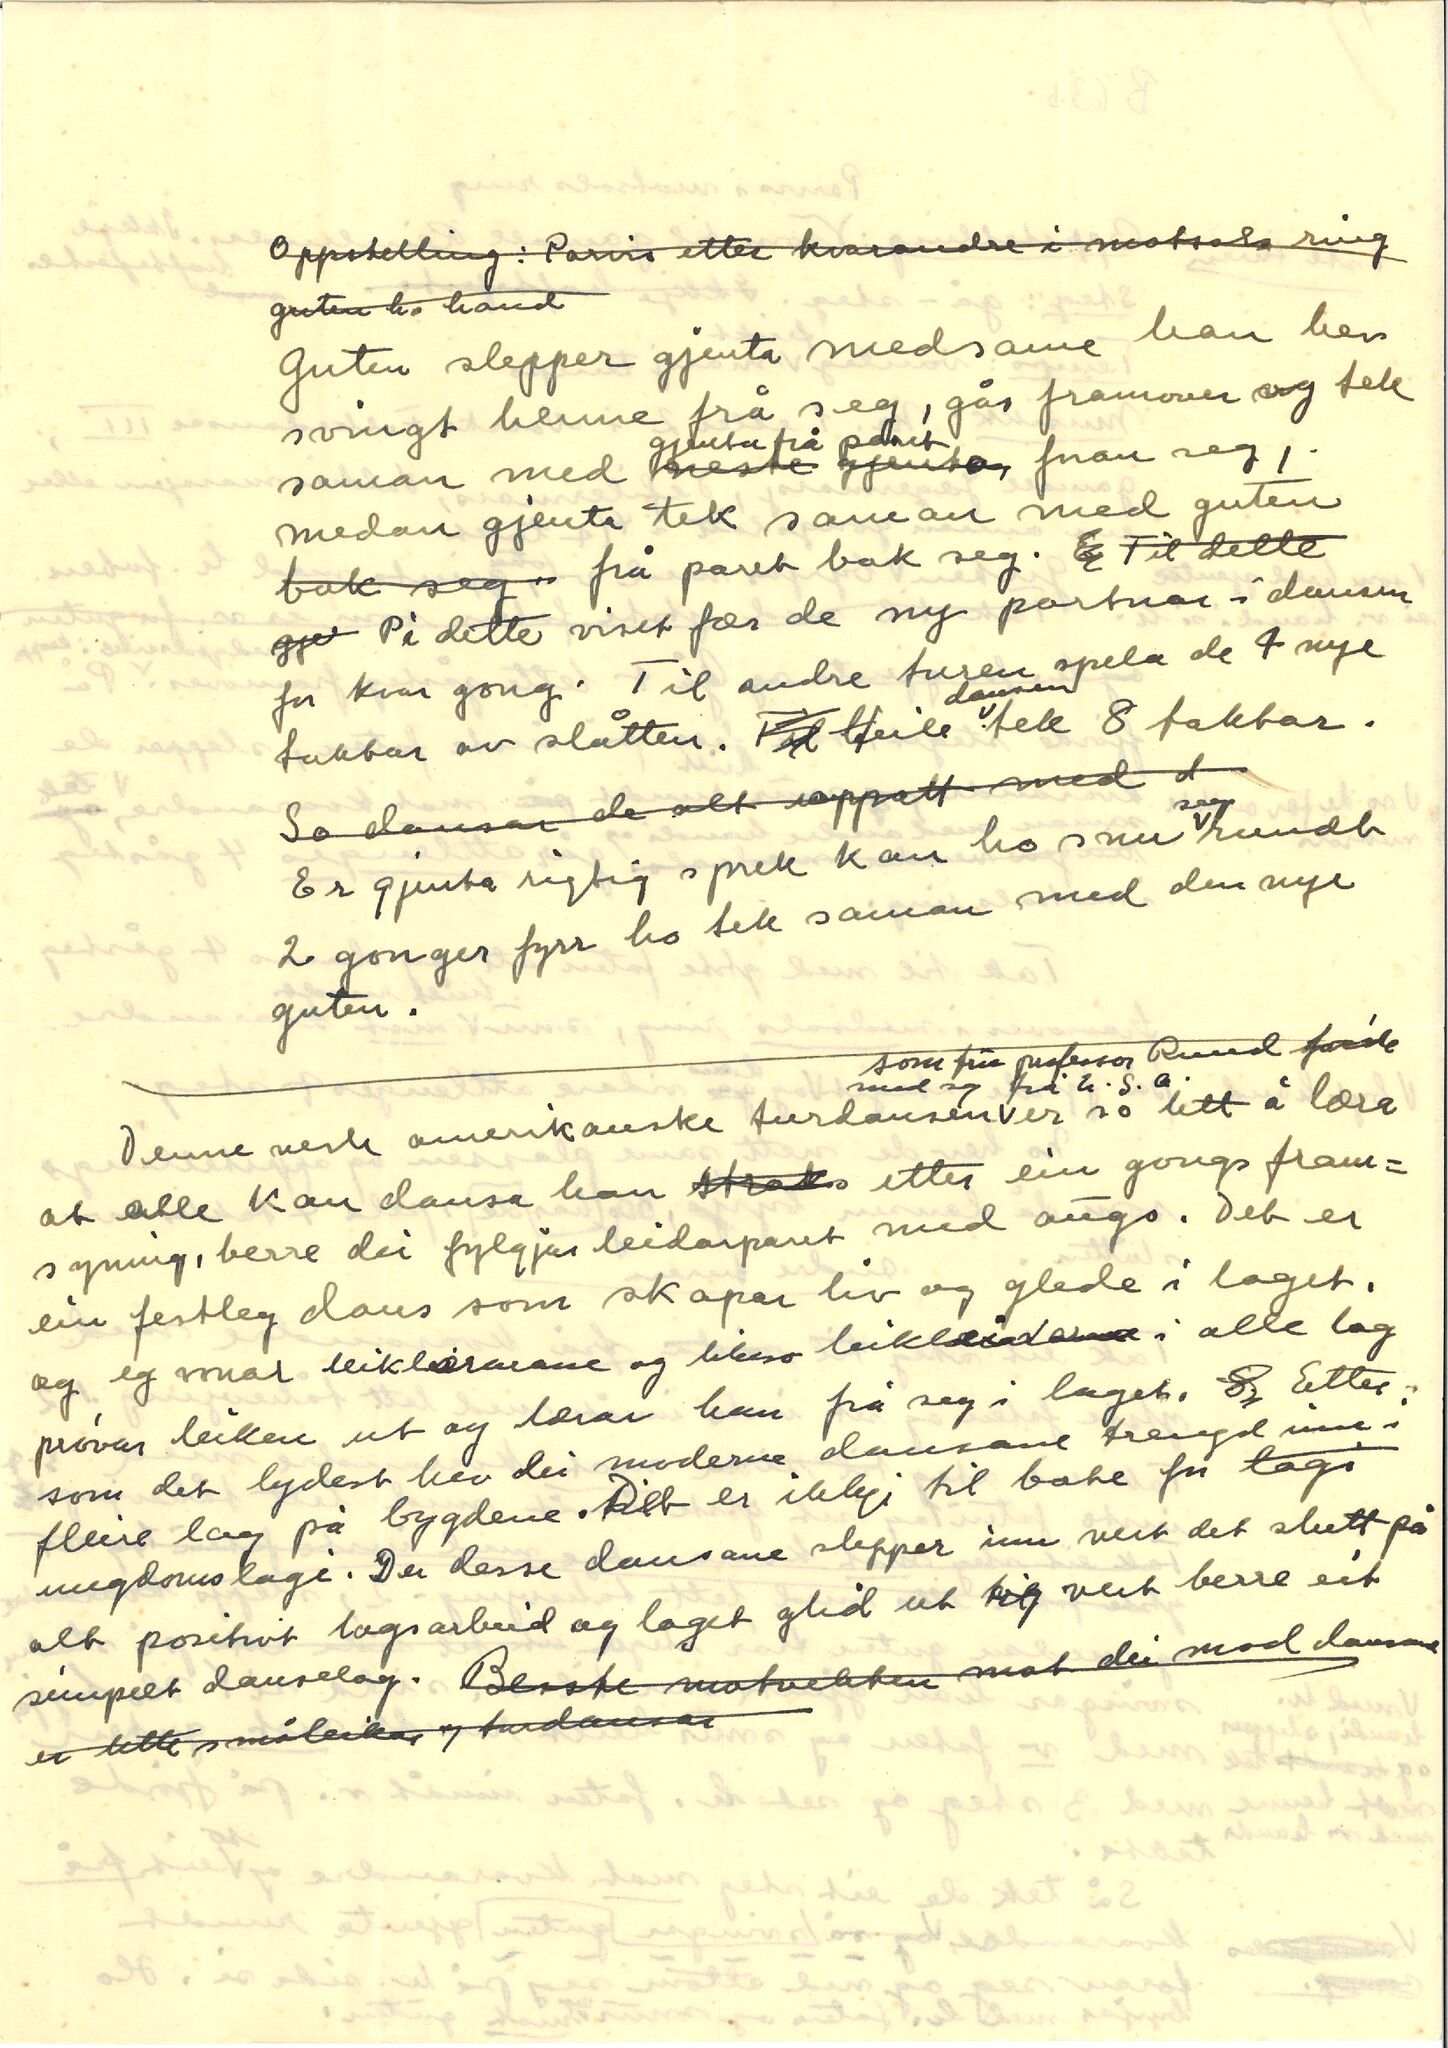 Oppstelling: Parvis etter kvarandre i motsols ring
guten h. hand
Guten slepper gjenta medsame han hev
svingt henne frå seg, går framover og tek
gjenta frå paret
saman med neste gjenta, fram seg,
medan gjenta tek saman med guten
bak seg. frå paret bak seg. Til dette
gje På dette viset fær de ny partnar i dansen
for kvar gong. Til andre turen spela de 4 nye
dansen
taktar av slåtten. Heile tek 8 taktar.
So dansar de alt uoppatt med d
seg
Er gjenta rigtig sprek kan ho snu rundt
2 gonger fyrr ho tek saman med den nye
guten.
som frå professor Ruud
med seg frå U.S.A.
Denne vesle amerikanske turdansen er so lett å læra
at alle kan dansa han straks etter ein gongs fram=
syning, berre dei fylgjer leidarparet med augo. Det er
ein festleg dans som skapar liv og glede i laget,
og eg vonar leiklærarane og likeso leikleidarane i alle lag
prøvar leiken ut og lærar han frå seg i laget. Etter
som det lydest hev dei moderne dansane trengd inn i
fleire lag på bygdene. Det er ikkje til bate for lagi
ungdomslagi. Der desse dansane slepper inn vert det slutt på
alt positivt lagsarbeid og laget glid ut og vert berre eit
simpelt danselag. Beste motvekten mot dei mod dansane
er lette småleikar og turdansar